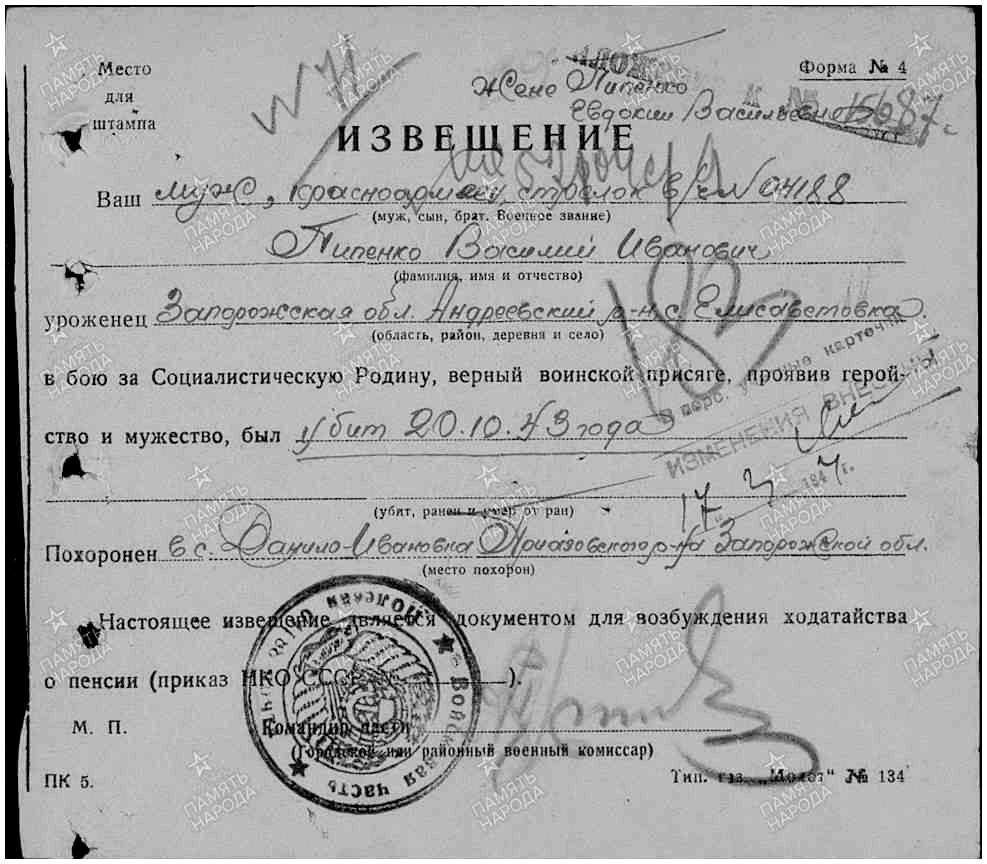 Место
для
штампа
Форма № 4
Жене Пипенко
Евдокии Васильевне
ИЗВЕЩЕНИЕ
Ваш муж, красноармеец, стрелок в/ч № 04188
(муж, сын, брат. Военное звание)
Пипенко Василий Иванович
(фамилия, имя и отчество)
уроженец Запорожская обл. Андреевский р-н с. Елисаветовка
(область, район, деревня и село)
в бою за Социалистическую Родину, верный воинской присяге, проявив герой-
ство и мужество, был убит 20.10.43 года
ИЗМЕНЕНИЯ ВНЕСЕНЫ
(убит, ранен и умер от ран)
Похоронен в с. Данило-Ивановка Приазовского р-на Запорожской обл.
(место похорон)
Настоящее извещение является документом для возбуждения ходатайства
о пенсии (приказ НКО СССР № ).
М. П.
Командир части
(Городской или районный военный комиссар)
Войсковая часть
ПК 5.
Тип. газ. „Молот" № 134
ПАМЯТЬ НАРОДА